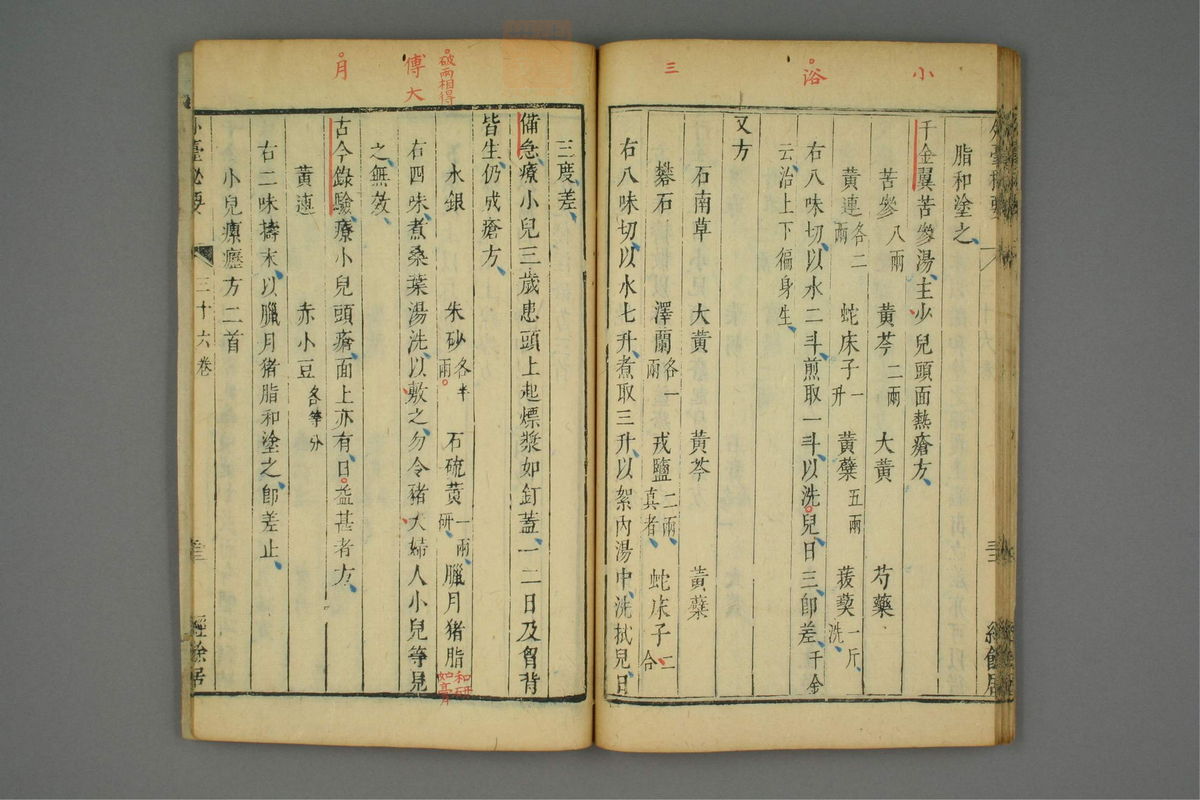 小
浴
三
脂和塗之
千金翼苦參湯主少兒頭面熱瘡方
苦參八兩 黃芩二兩 大黃 芍藥
黃連各二兩 蛇床子一升 黃蘗五兩 菝葜一斤洗
右八味切以水二斗煎取一斗以洗兒日三卽差千金
云治上下徧身生
又方
石南草 大黃 黃芩 黃蘗
礬石 澤蘭各一兩 戎鹽二兩真者 蛇床子二合
右八味切以水七升煮取三升以絮內湯中洗拭兒日
破兩相得
傅大
月
三度差
備急療小兒三歲患頭上起熛漿如釘蓋一二日及胷背
皆生仍成瘡方
水銀 朱砂各半兩 石硫黃一兩研 臘月猪脂和研如膏
右四味煮桑葉湯洗以敷之勿令猪犬婦人小兒等見
之無效
古今錄驗療小兒頭瘡面上亦有日益甚者方
黃連 赤小豆各等分
右二味擣末以臘月猪脂和塗之卽差止
小兒瘰癧方二首
外臺秘要 三十六卷 經餘居